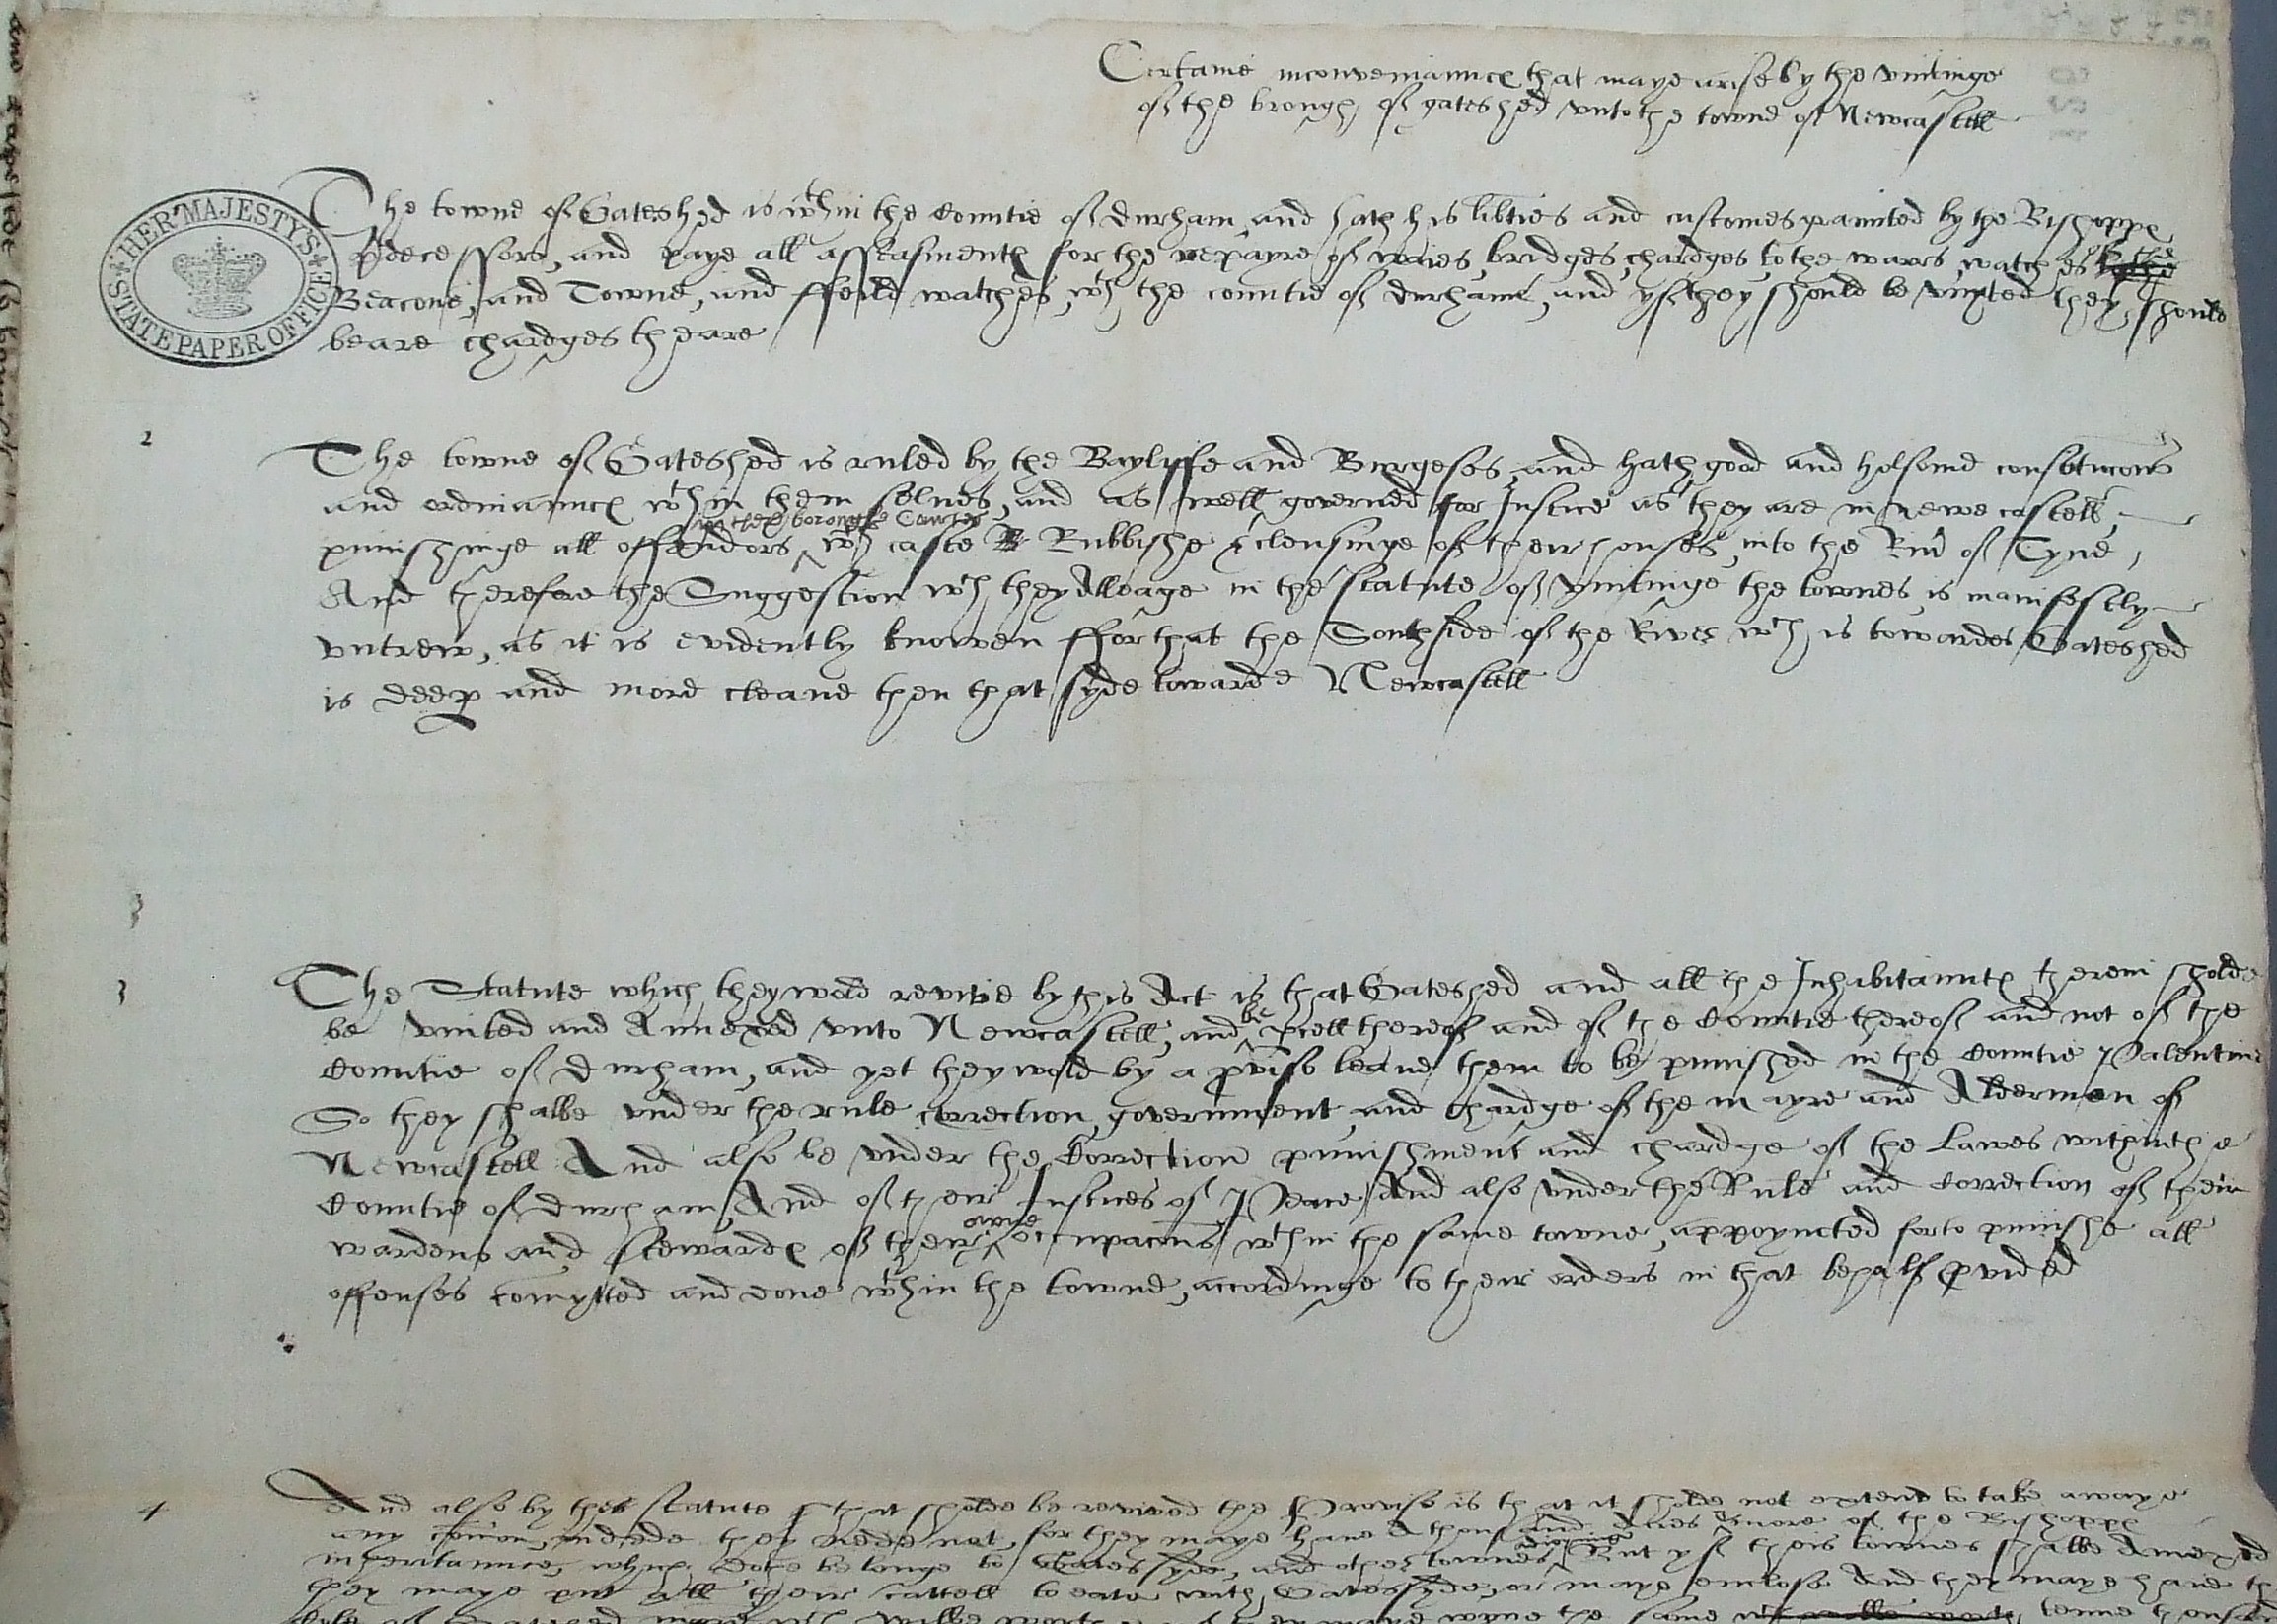 Certaine inconveniaunces that maye arise by the vnitinge
of the brough of gateshed vnto the towne of Newcastell
HER MAJESTY'S STATE PAPER OFFICE
The towne of Gateshed is wthin the Countie of Durham and hath his libties and customes graunted by the Bishopps
pdecessors, and paye all asseasments for the repayre of waies, bridges, chardges to the warrs, watches of the
Beacons, and Towne, and ffeild watches, wth the countie of Durhame, and yf they should be vnyted they should
beare chardges theare
2
The towne of Gateshed is ruled by the Baylyffe and Burgeses, and hath good and holsome constitucons
and ordinaunces wthin them selves, and as well governed for Justice as they are in newe castell,
in ther boroughe Courtes
punishinge all offendors wch caste Rubbishe & clensinge of their houses, into the River of Tyne,
And therefore the Suggestion wch they Alleage in the statute of vnitinge the townes is manifestly
vntrew, as it is evidently knowen ffor that the Southside of the River wch is towardes Gateshed
is deep and more cleane then that syde towarde Newcastell
3
3
The Statute which they wold revive by this Act is that Gateshed and all the Inhabitaunts therein sholde
be vnited and Annexed vnto Newcastell, and be pcell thereof and of the Countie thereof and not of the
Countie of Durham, and yet they wold by a proviso leave them to be punished in the Countie Palentine
So they shalbe vnder the rule correction, government, and chardge of the mayre and Aldermen of
Newcastell And also be vnder the Correction punishment and chardge of the Lawes within the
Countie of Durham, And of their Justices of Peace And also vnder the Rule and Correction of their
wardens and stewardes of their owne occupacons wthin the same towne, appoyncted for to punishe all
offenses comytted and done wthin the towne, accordinge to their orders in that behalf pvided
4
And also by this statute that sholde be revived the Proviso is that it sholde not extend to take awaye
any comon, indede they nede not, for they maye have A thousand Acres & more of the Bishopps
inheritaunce, which doe belonge to Gatessyde, and other townes adioyninge But yf theis townes shalbe Annexed
they maye put all their cattell to eate with Gatessyde, or maye enclose And they maye have